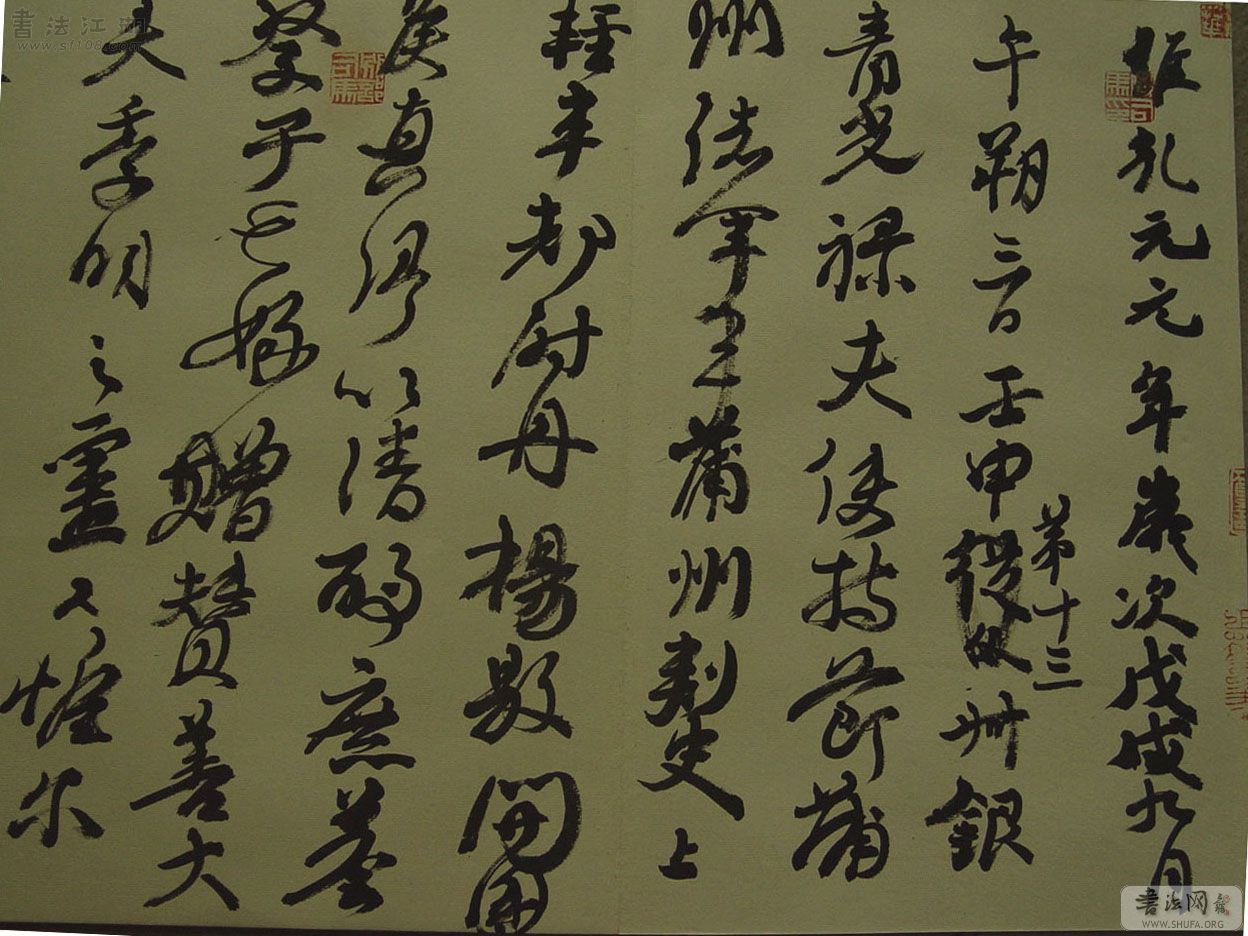 維乾元元年歲次戊戌九月
午朔三日壬申第十三叔銀
青光祿夫使持節蒲
州諸軍事蒲州刺史上
輕車都尉丹楊縣開國
侯真卿以清酌庶羞
祭于亡姪贈贊善大
夫季明之靈曰惟爾
書法江湖
www.sf108.com
書法网
WWW.SHUFA.ORG